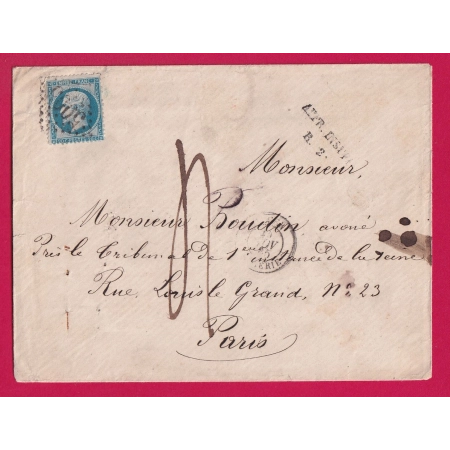 EMPIRE FRANC
AFF. INSUF.
R. 2.
Monsieur,
Monsieur Boudin avoué
Près le Tribunal de 1ère instance de la Seine
Rue Louis le Grand, No. 23
Paris